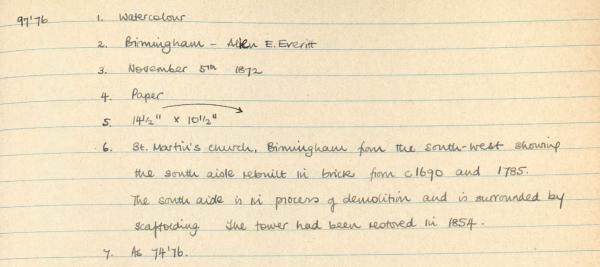 97'76 1. Watercolour
2. Birmingham - Allen E. Everitt
3. November 5th 1872
4. Paper
5. 14½" x 10½"
6. St. Martin's church, Birmingham from the south-west showing
the south aisle rebuilt in brick from c1690 and 1785.
The south aisle is in process of demolition and is surrounded by
scaffolding. The tower had been restored in 1854.
7. As 74'76.